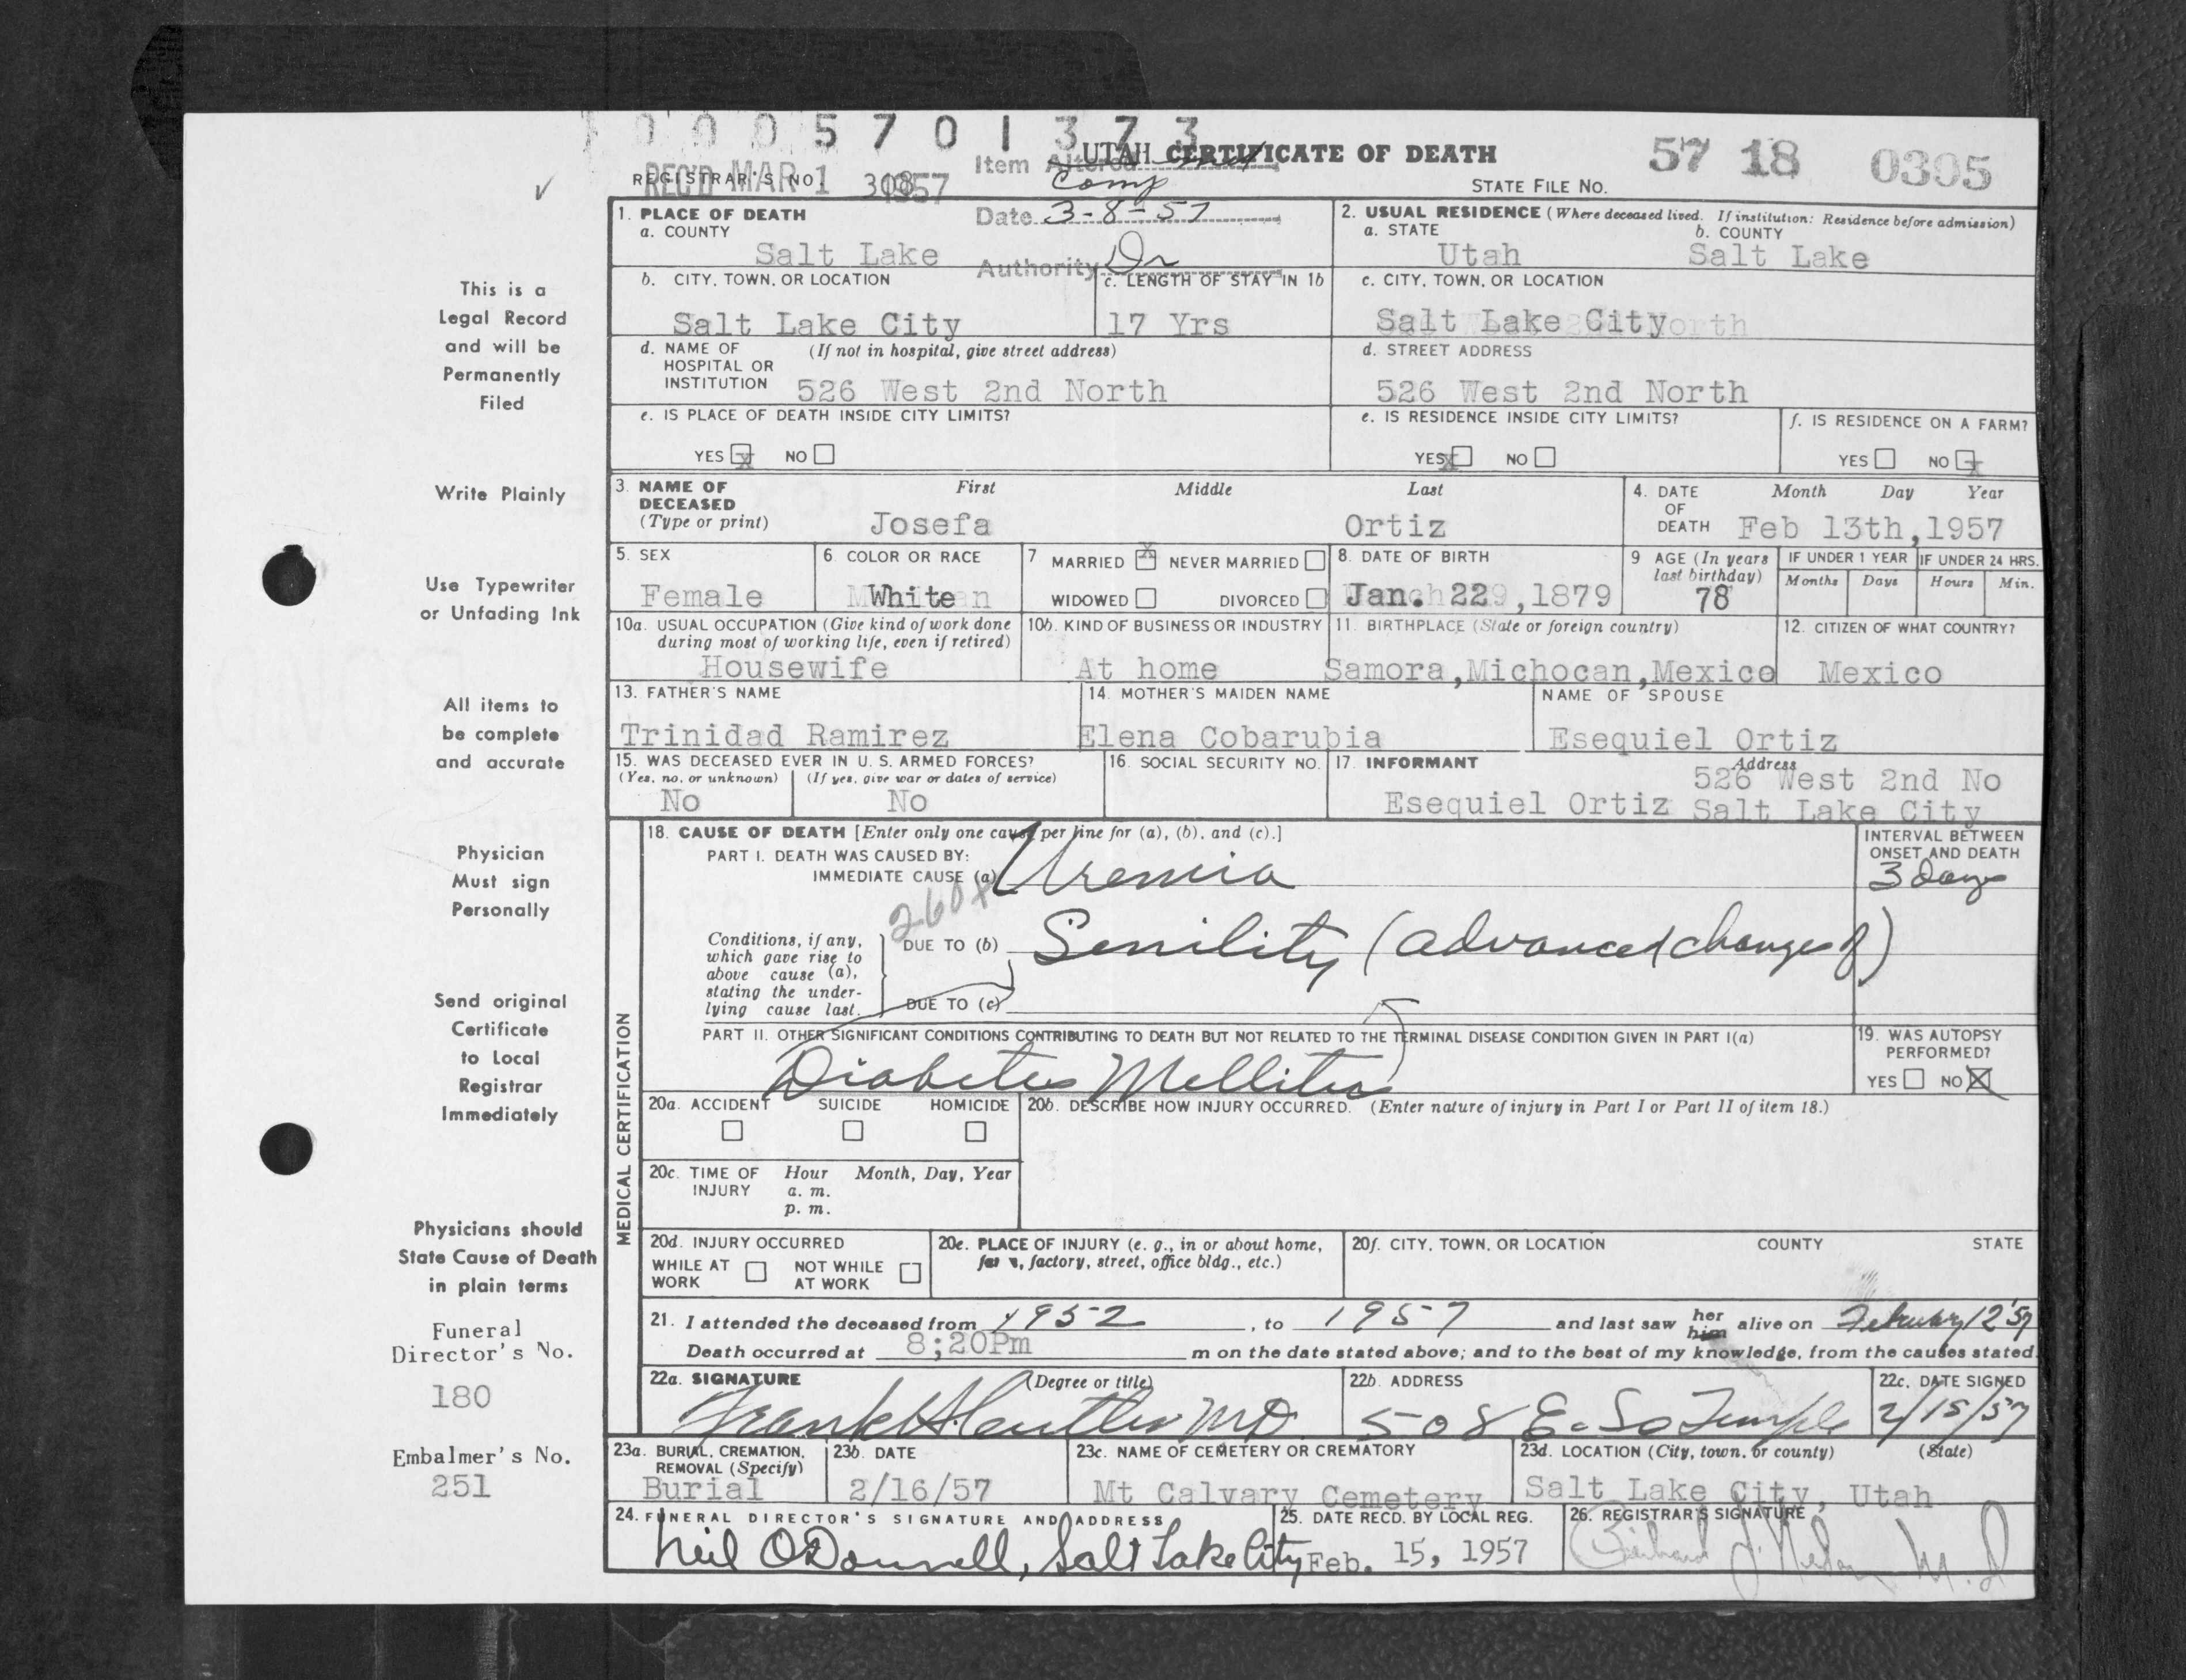 0005701373
UTAH CERTIFICATE OF DEATH
57 18 0395
Item Altered Med
REGISTRAR'S NO. 308
REC'D MAR 1 1957
Comp
STATE FILE NO.
Date 3-8-57
Authority Dr
✓
1. PLACE OF DEATH
a. COUNTY
Salt Lake
2. USUAL RESIDENCE (Where deceased lived. If institution: Residence before admission)
a. STATE b. COUNTY
Utah Salt Lake
b. CITY, TOWN, OR LOCATION
Salt Lake City
c. LENGTH OF STAY IN 1b
17 Yrs
c. CITY, TOWN, OR LOCATION
Salt Lake City
d. NAME OF (If not in hospital, give street address)
HOSPITAL OR
INSTITUTION 526 West 2nd North
d. STREET ADDRESS
526 West 2nd North
e. IS PLACE OF DEATH INSIDE CITY LIMITS?
YES x NO
e. IS RESIDENCE INSIDE CITY LIMITS?
YES x NO
f. IS RESIDENCE ON A FARM?
YES NO x
This is a
Legal Record
and will be
Permanently
Filed
Write Plainly
Use Typewriter
or Unfading Ink
All items to
be complete
and accurate
Physician
Must sign
Personally
Send original
Certificate
to Local
Registrar
Immediately
Physicians should
State Cause of Death
in plain terms
Funeral
Director's No.
180
Embalmer's No.
251
3. NAME OF DECEASED
(Type or print)
First Middle Last
Josefa Ortiz
4. DATE OF DEATH Month Day Year
Feb 13th,1957
5. SEX
Female
6. COLOR OR RACE
White
7 MARRIED x NEVER MARRIED
WIDOWED DIVORCED
8. DATE OF BIRTH
Jan. 22,1879
9 AGE (In years
last birthday)
78
IF UNDER 1 YEAR IF UNDER 24 HRS.
Months Days Hours Min.
10a. USUAL OCCUPATION (Give kind of work done
during most of working life, even if retired)
Housewife
10b. KIND OF BUSINESS OR INDUSTRY
At home
11. BIRTHPLACE (State or foreign country)
Samora,Michocan,Mexico
12. CITIZEN OF WHAT COUNTRY?
Mexico
13. FATHER'S NAME
Trinidad Ramirez
14. MOTHER'S MAIDEN NAME
Elena Cobarubia
NAME OF SPOUSE
Esequiel Ortiz
15. WAS DECEASED EVER IN U. S. ARMED FORCES?
(Yes, no, or unknown) (If yes, give war or dates of service)
No No
16. SOCIAL SECURITY NO.
17. INFORMANT Address
526 West 2nd No
Esequiel Ortiz Salt Lake City
MEDICAL CERTIFICATION
18. CAUSE OF DEATH [Enter only one cause per line for (a), (b), and (c).]
PART I. DEATH WAS CAUSED BY:
IMMEDIATE CAUSE (a) Uremia
INTERVAL BETWEEN
ONSET AND DEATH
3 Days
260X
Conditions, if any,
which gave rise to
above cause (a),
stating the under-
lying cause last.
DUE TO (b) Senility (advanced changes of)
DUE TO (c)
PART II. OTHER SIGNIFICANT CONDITIONS CONTRIBUTING TO DEATH BUT NOT RELATED TO THE TERMINAL DISEASE CONDITION GIVEN IN PART I(a)
Diabetes Mellitus
19. WAS AUTOPSY
PERFORMED?
YES NO X
20a. ACCIDENT SUICIDE HOMICIDE
20b. DESCRIBE HOW INJURY OCCURRED. (Enter nature of injury in Part I or Part II of item 18.)
20c. TIME OF INJURY Hour Month, Day, Year
a. m.
p. m.
20d. INJURY OCCURRED
WHILE AT WORK NOT WHILE AT WORK
20e. PLACE OF INJURY (e. g., in or about home,
farm, factory, street, office bldg., etc.)
20f. CITY, TOWN, OR LOCATION COUNTY STATE
21. I attended the deceased from 1952, to 1957 and last saw her him alive on February 12 '57
Death occurred at 8;20Pm m on the date stated above; and to the best of my knowledge, from the causes stated.
22a. SIGNATURE (Degree or title)
Frank MD.
22b. ADDRESS
508 E. So Temple
22c. DATE SIGNED
2/15/57
23a. BURIAL, CREMATION,
REMOVAL (Specify)
Burial
23b. DATE
2/16/57
23c. NAME OF CEMETERY OR CREMATORY
Mt Calvary Cemetery
23d. LOCATION (City, town, or county) (State)
Salt Lake City, Utah
24. FUNERAL DIRECTOR'S SIGNATURE AND ADDRESS
Neil O'Donnell, Salt Lake City
25. DATE RECD. BY LOCAL REG.
Feb. 15, 1957
26. REGISTRAR'S SIGNATURE
M.D